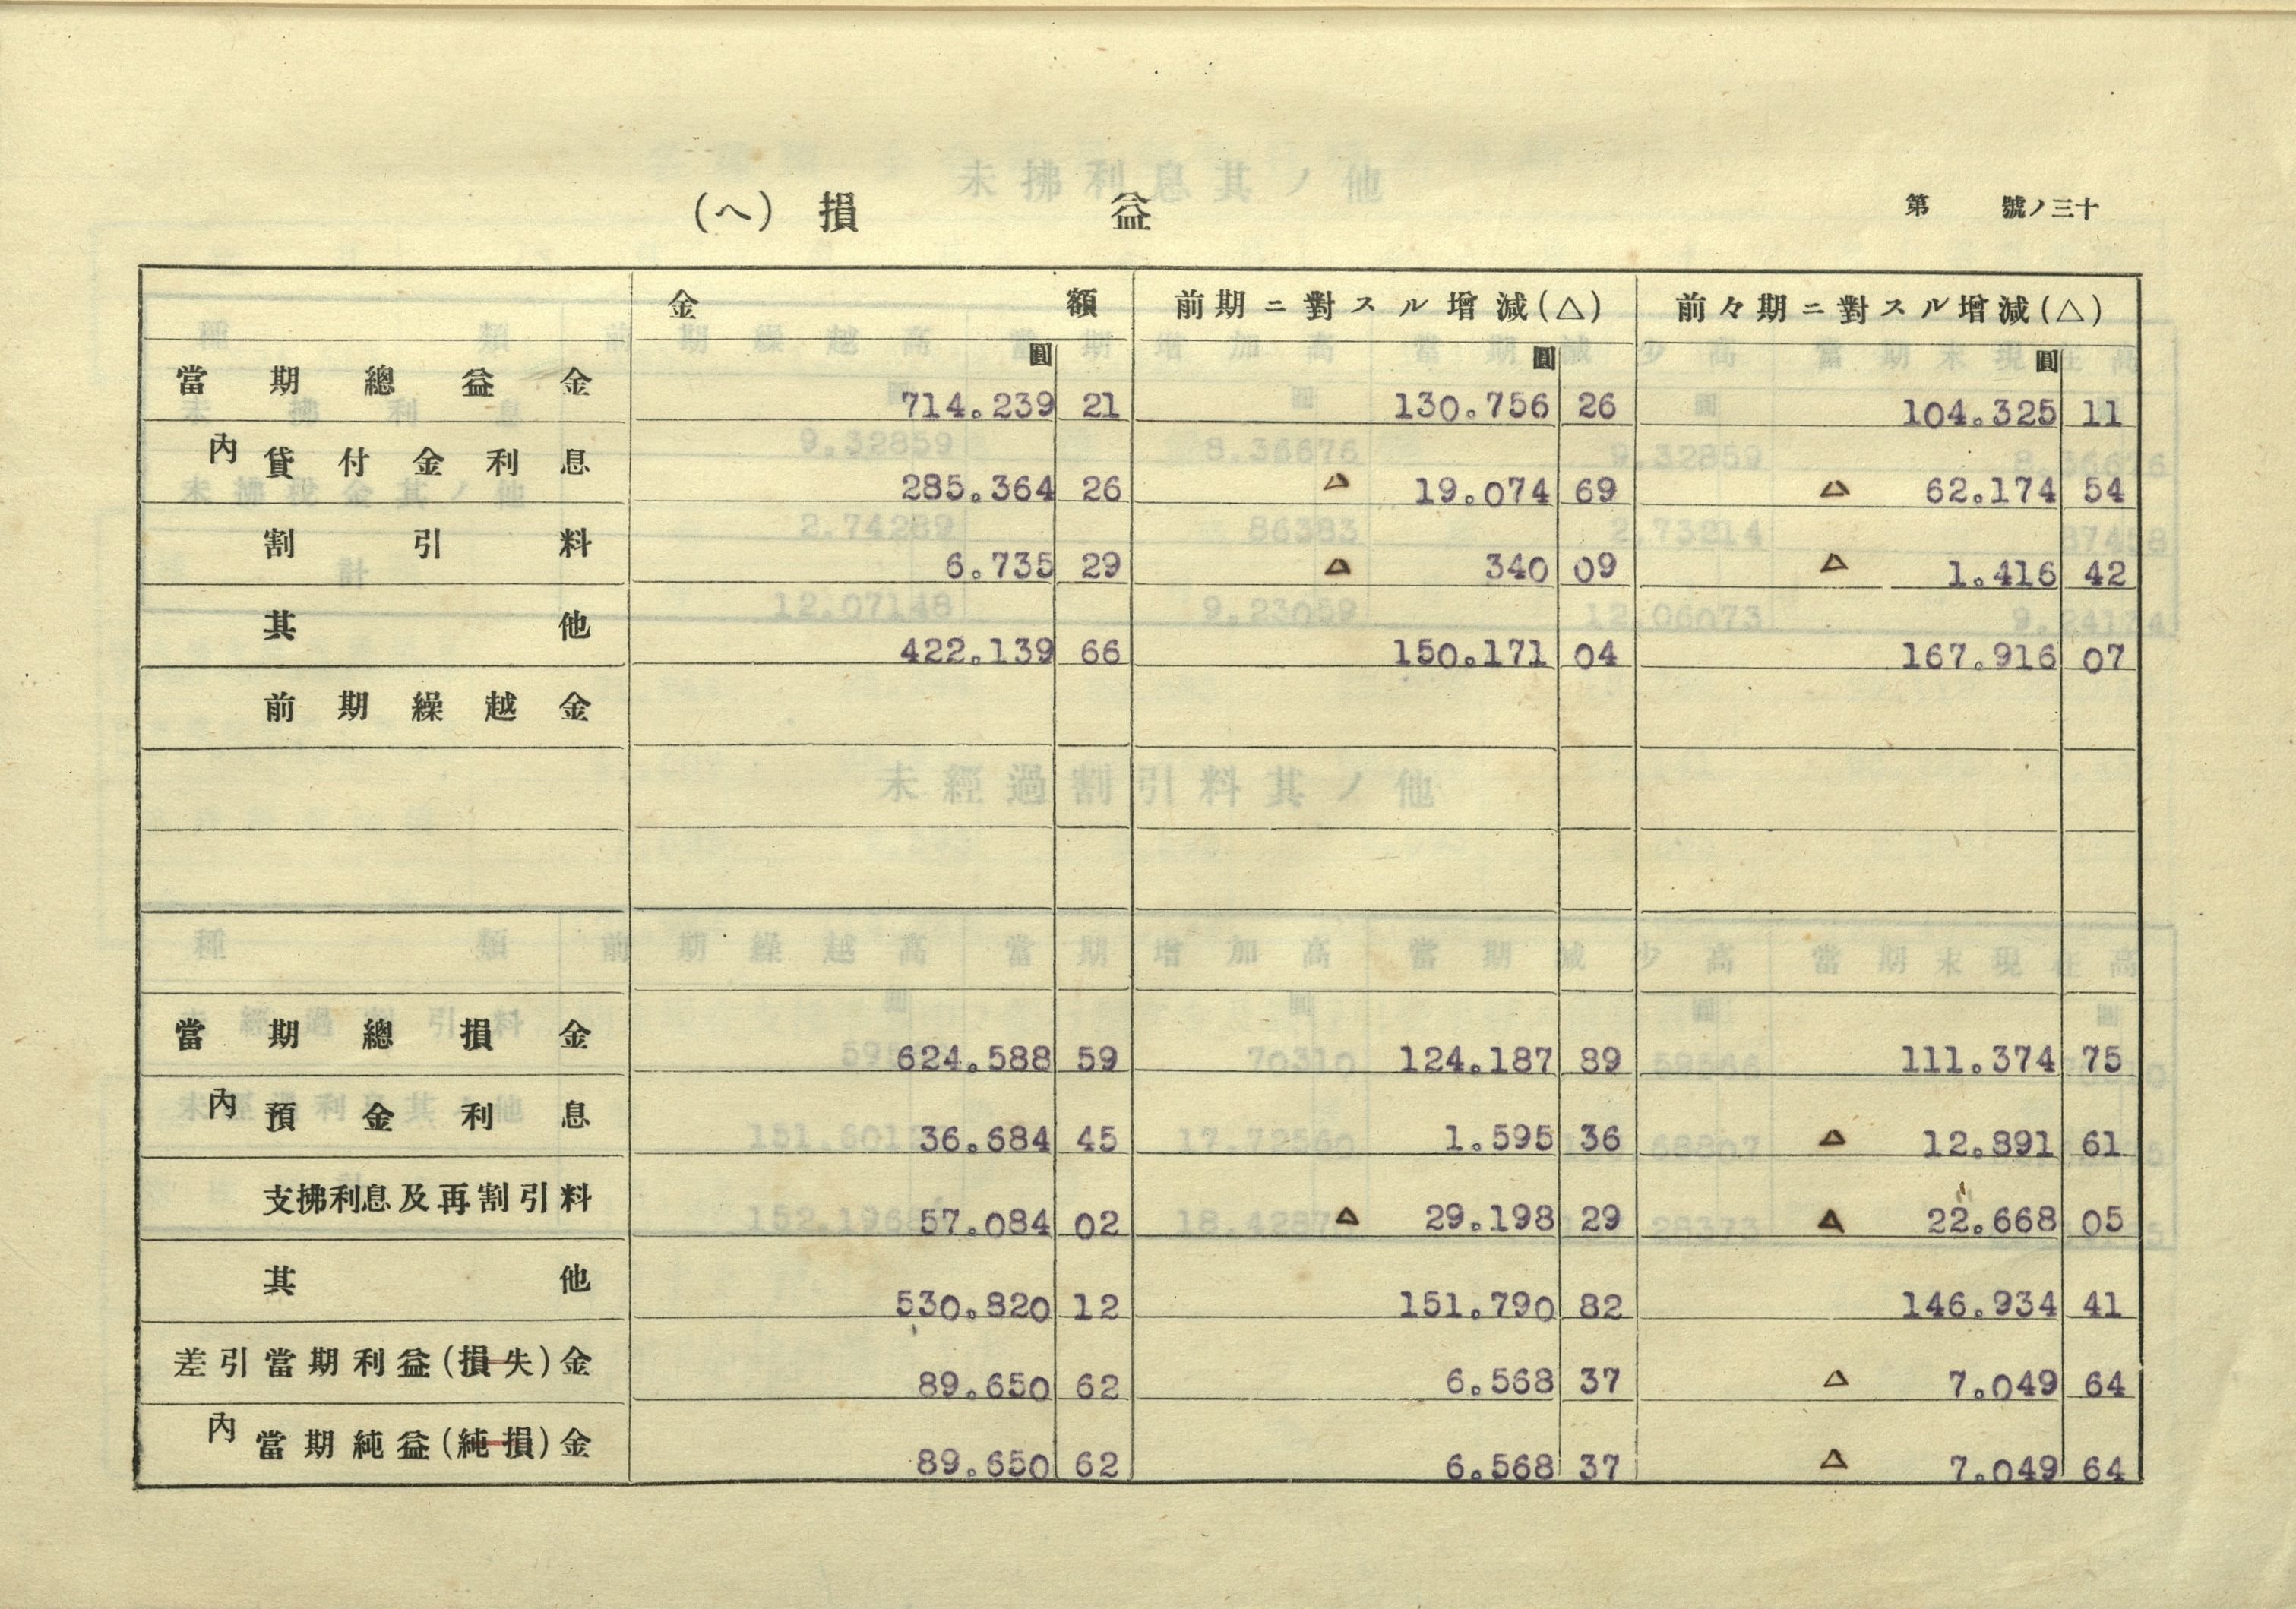 (ヘ) 損 益
第 號ノ三十
金 額 前期ニ對スル增減(△) 前々期ニ對スル增減(△)
圓 圓 圓
當期總益金 714.239 21 130.756 26 104.325 11
內 貸付金利息 285.364 26 △ 19.074 69 △ 62.174 54
割引料 6.735 29 △ 340 09 △ 1.416 42
其他 422.139 66 150.171 04 167.916 07
前期繰越金
當期總損金 624.588 59 124.187 89 111.374 75
內 預金利息 36.684 45 1.595 36 △ 12.891 61
支拂利息及再割引料 57.084 02 △ 29.198 29 △ 22.668 05
其他 530.820 12 151.790 82 146.934 41
差引當期利益(損失)金 89.650 62 6.568 37 △ 7.049 64
內 當期純益(純損)金 89.650 62 6.568 37 △ 7.049 64